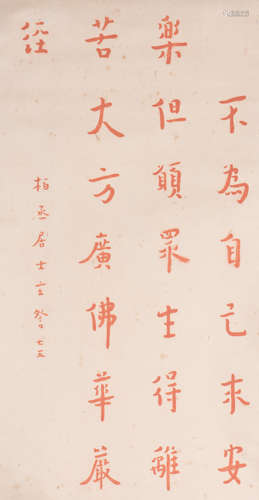 不為自己求安
樂但願眾生得離
苦大方廣佛華嚴
經
柏丞居士